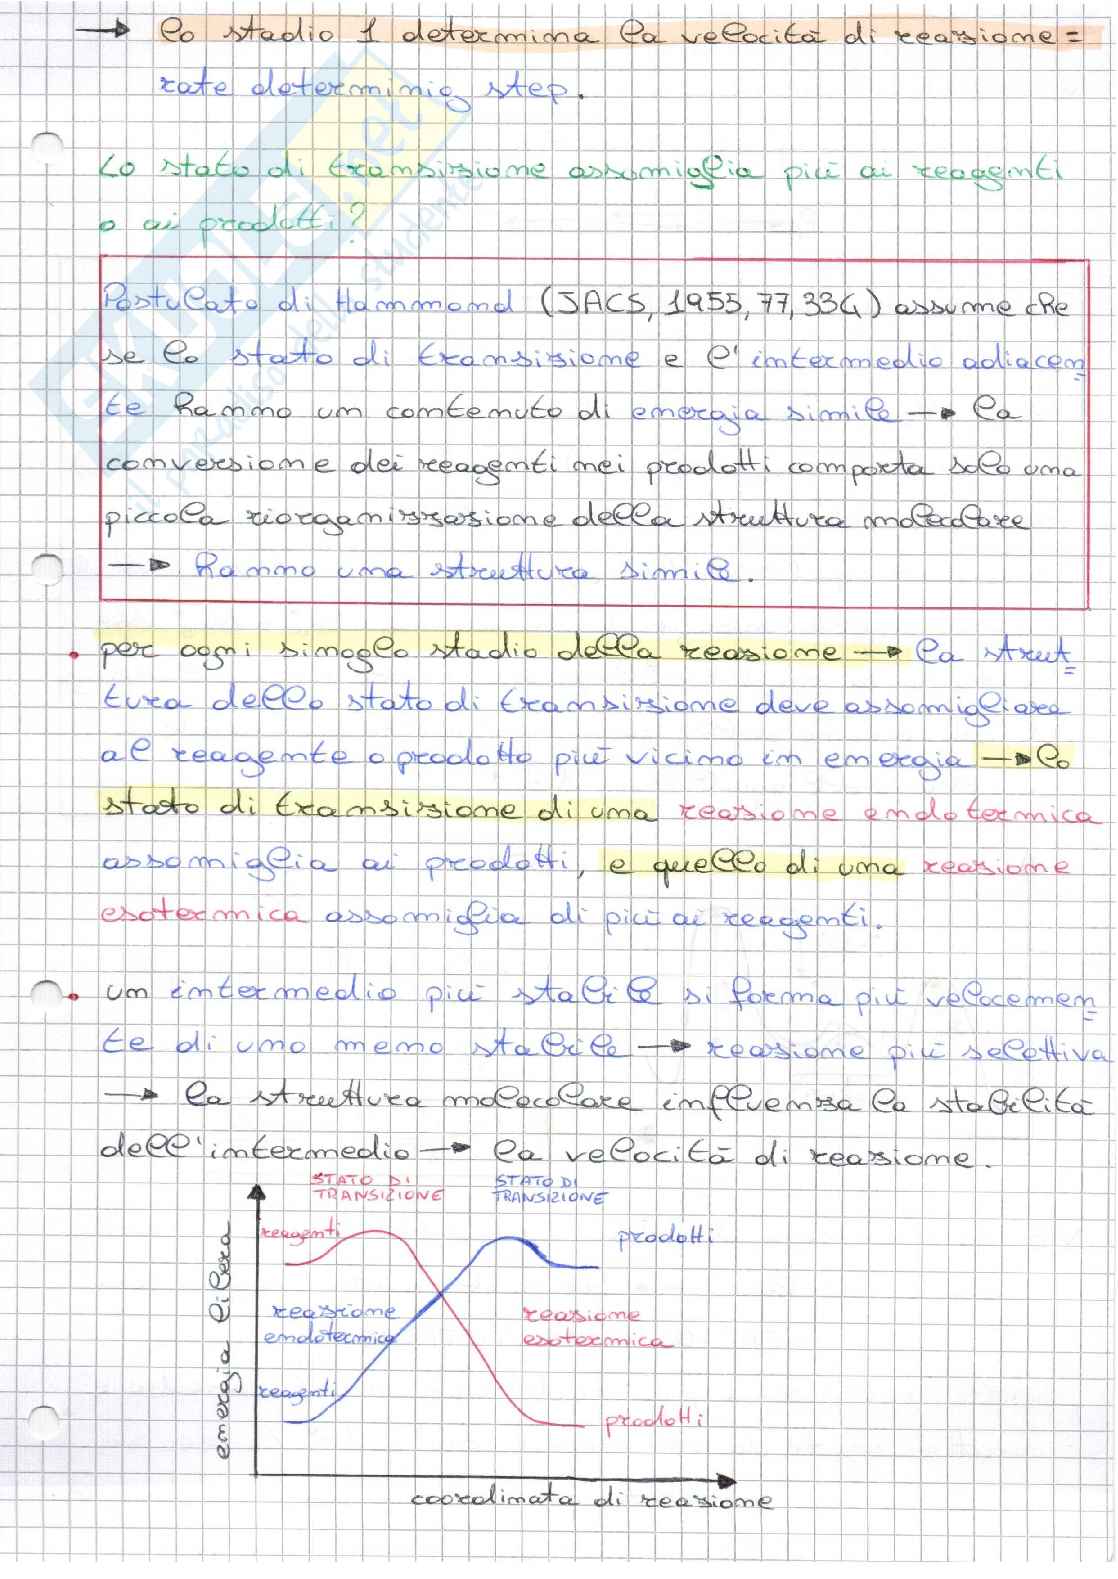 → lo stadio 1 determina la velocità di reazione =
rate determinig step.
Lo stato di transizione assomiglia più ai reagenti
o ai prodotti?
Postulato di Hammond (JACS, 1955, 77, 334) assume che
se lo stato di transizione e l'intermedio adiacen
te hanno un contenuto di energia simile → la
conversione dei reagenti nei prodotti comporta solo una
piccola riorganizzazione della struttura molecolare
→ hanno una struttura simile.
• per ogni singolo stadio della reazione → la strut
tura dello stato di transizione deve assomigliare
al reagente o prodotto più vicino in energia → lo
stato di transizione di una reazione endotermica
assomiglia ai prodotti, e quello di una reazione
esotermica assomiglia di più ai reagenti.
• un intermedio più stabile si forma più velocemen
te di uno meno stabile → reazione più selettiva
→ la struttura molecolare influenza la stabilità
dell'intermedio → la velocità di reazione.
STATO DI TRANSIZIONE
STATO DI TRANSIZIONE
reagenti
prodotti
energia libera
reazione endotermica
reazione esotermica
reagenti
prodotti
coordinata di reazione